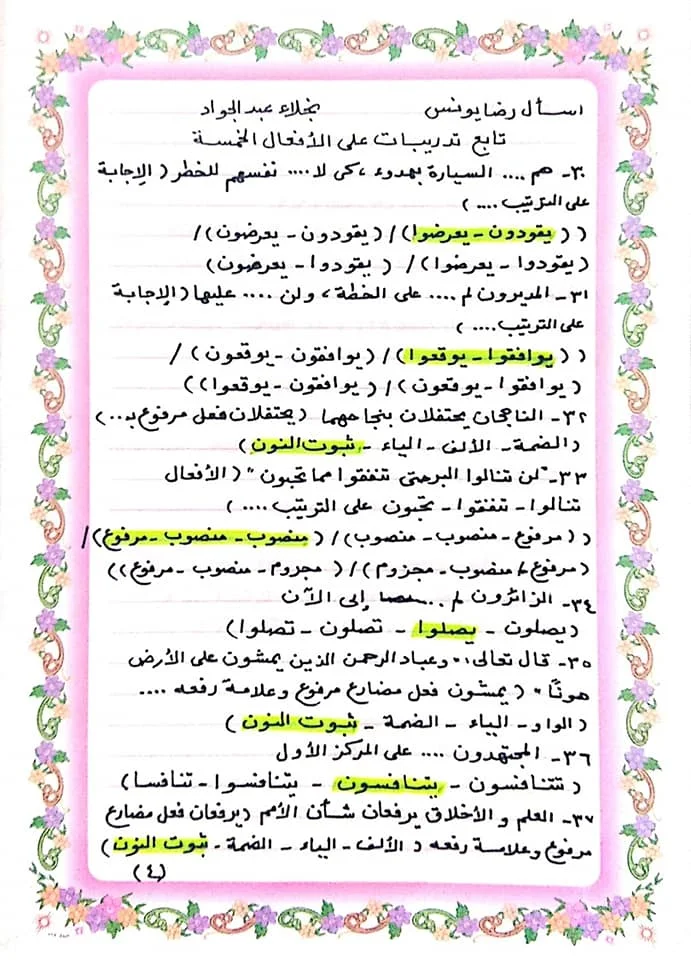 اسأل رضا يونس نجلاء عبد الجواد
تابع تدريبات على الأفعال الخمسة
٣٠- هم .... السيارة بهدوء، كى لا .... نفسهم للخطر (الإجابة
على الترتيب .... )
( (يقودون - يعرضوا) / (يقودون - يعرضون) /
(يقودوا - يعرضوا) / ( يقودوا - يعرضون)
٣١- المديرون لم .... على الخطة، ولن .... عليها (الإجابة
على الترتيب .... )
( (يوافقوا - يوقعوا) / (يوافقون - يوقعون) /
(يوافقوا - يوقعون) / ( يوافقون - يوقعوا))
٣٢- الناجحان يحتفلان بنجاحهما (يحتفلان فعل مرفوع بـ...)
(الضمة - الألف - الياء - ثبوت النون)
٣٣- "لن تنالوا البر حتى تنفقوا مما تحبون" (الأفعال
تنالوا - تنفقوا - تحبون على الترتيب .... )
( (مرفوع - منصوب - منصوب) / ( منصوب - منصوب - مرفوع) /
(مرفوع / منصوب - مجزوم) / ( مجزوم - منصوب - مرفوع))
٣٤- الزائرون لم .... إلى الآن
(يصلون - يصلوا - تصلون - تصلوا)
٣٥- قال تعالى: "وعباد الرحمن الذين يمشون على الأرض
هونًا" ( يمشون فعل مضارع مرفوع وعلامة رفعه ....
(الواو - الياء - الضمة - ثبوت النون )
٣٦- المجتهدون .... على المركز الأول
( تتنافسون - يتنافسون - يتنافسوا - تنافسا)
٣٧- العلم و الأخلاق يرفعان شأن الأمم (يرفعان فعل مضارع
مرفوع وعلامة رفعه ( الألف - الياء - الضمة - ثبوت النون)
(٤)